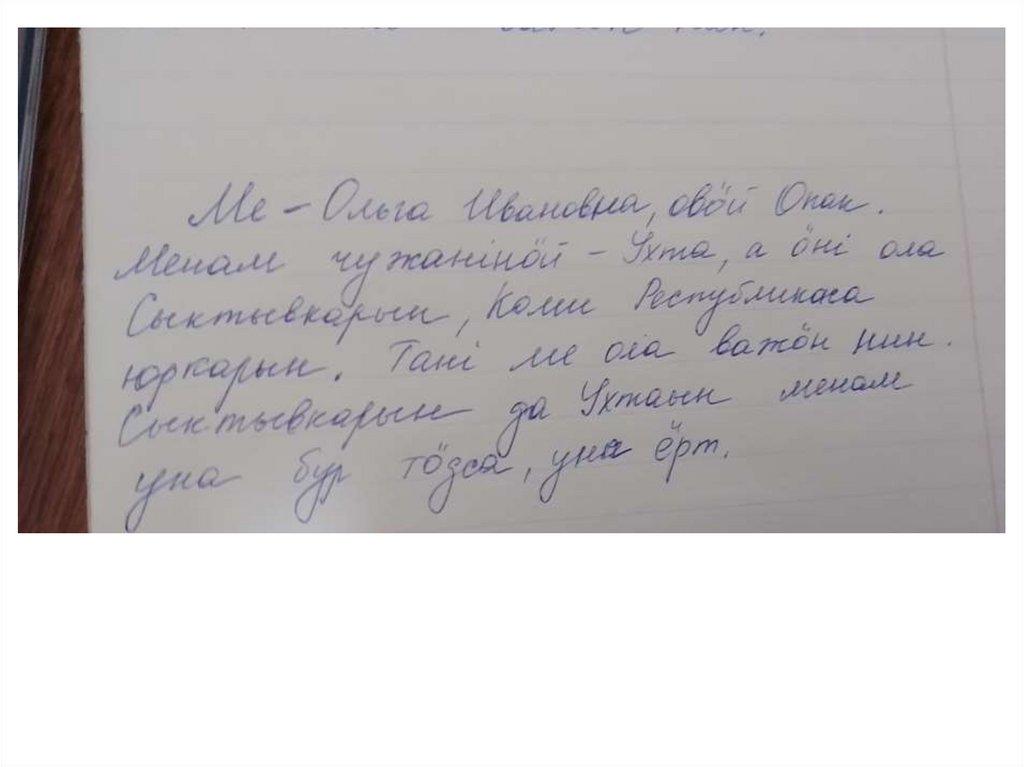 Ме – Ольга Ивановна, овӧй Опак.
Менам чужанінӧй – Ухта, а ӧні ола
Сыктывкарын, Коми Республикаса
юркарын. Тані ме ола важӧн нин.
Сыктывкарын да Ухтаын менам
уна бур тӧдса, уна ёрт.